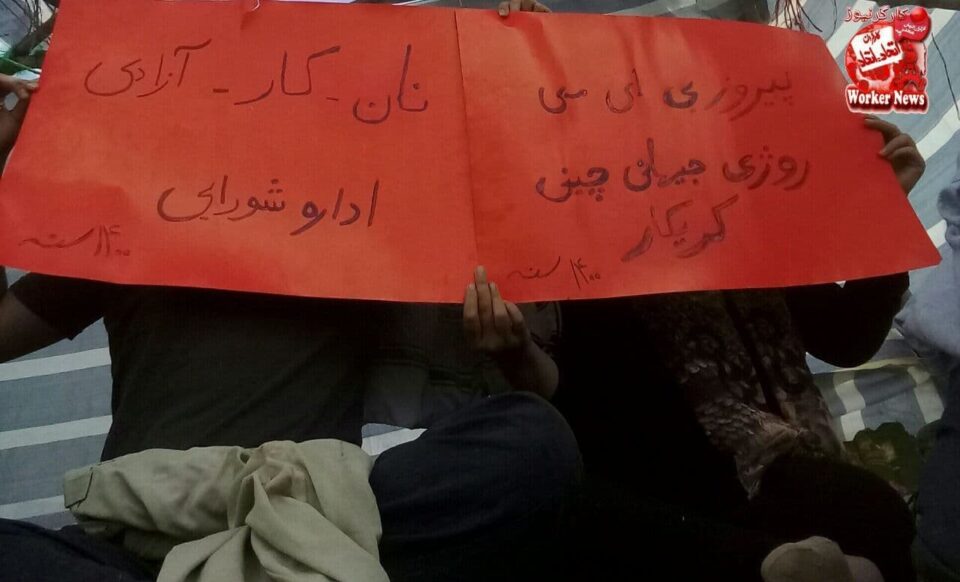 پیروزی ای می
روژی جیهانی چینی
کریکار
۱۴۰۰ سنه
نان - کار - آزادی
اداره شورایی
۱۴۰۰ سنه
کارگر نیوز
Worker News